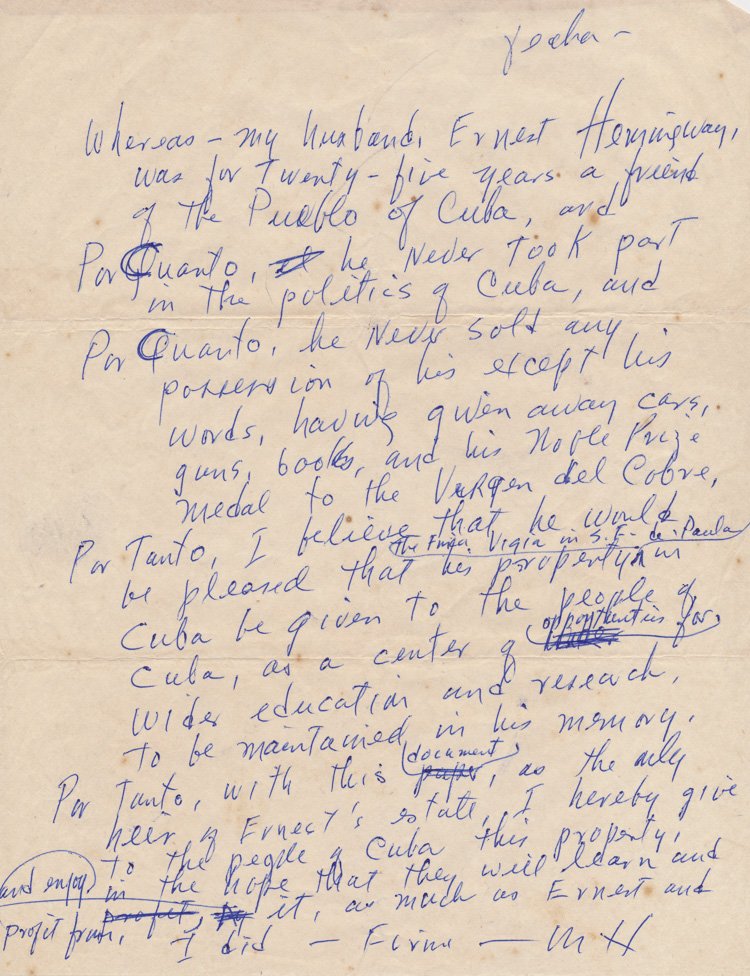 fecha –
Whereas – my husband, Ernest Hemingway,
was for twenty-five years a friend
of the Pueblo of Cuba, and
Por Cuanto, he never took part
in the politics of Cuba, and
Por Cuanto, he never sold any
possession of his except his
words, having given away cars,
guns, books, and his Noble Prize
medal to the Virgen del Cobre,
Por Tanto, I believe that he would
the Finca Vigia in S.F. de Paula
be pleased that his property in
Cuba be given to the people of
opportunities for
Cuba, as a center of
wider education and research,
to be maintained in his memory.
document
Por Tanto, with this paper, as the only
heir of Ernest's estate, I hereby give
to the people of Cuba this property,
and enjoy
in the hope that they will learn and
profit from, profit, it, as much as Ernest and
I did – Firma – MH